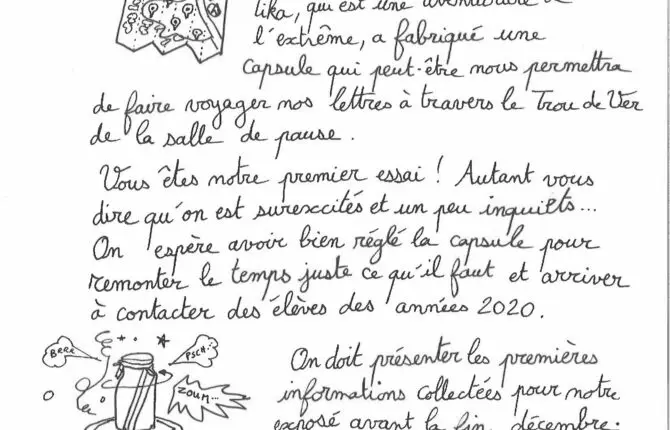 tika, qui est une aventurière de
l'extrême, a fabriqué une
capsule qui peut-être nous permettra
de faire voyager nos lettres à travers le Trou de Ver
de la salle de pause.
Vous êtes notre premier essai ! Autant vous
dire qu'on est surexcités et un peu inquiets...
On espère avoir bien réglé la capsule pour
remonter le temps juste ce qu'il faut et arriver
à contacter des élèves des années 2020.
BRRR
PSCH
ZOUM...
On doit présenter les premières
informations collectées pour notre
exposé avant la fin décembre.